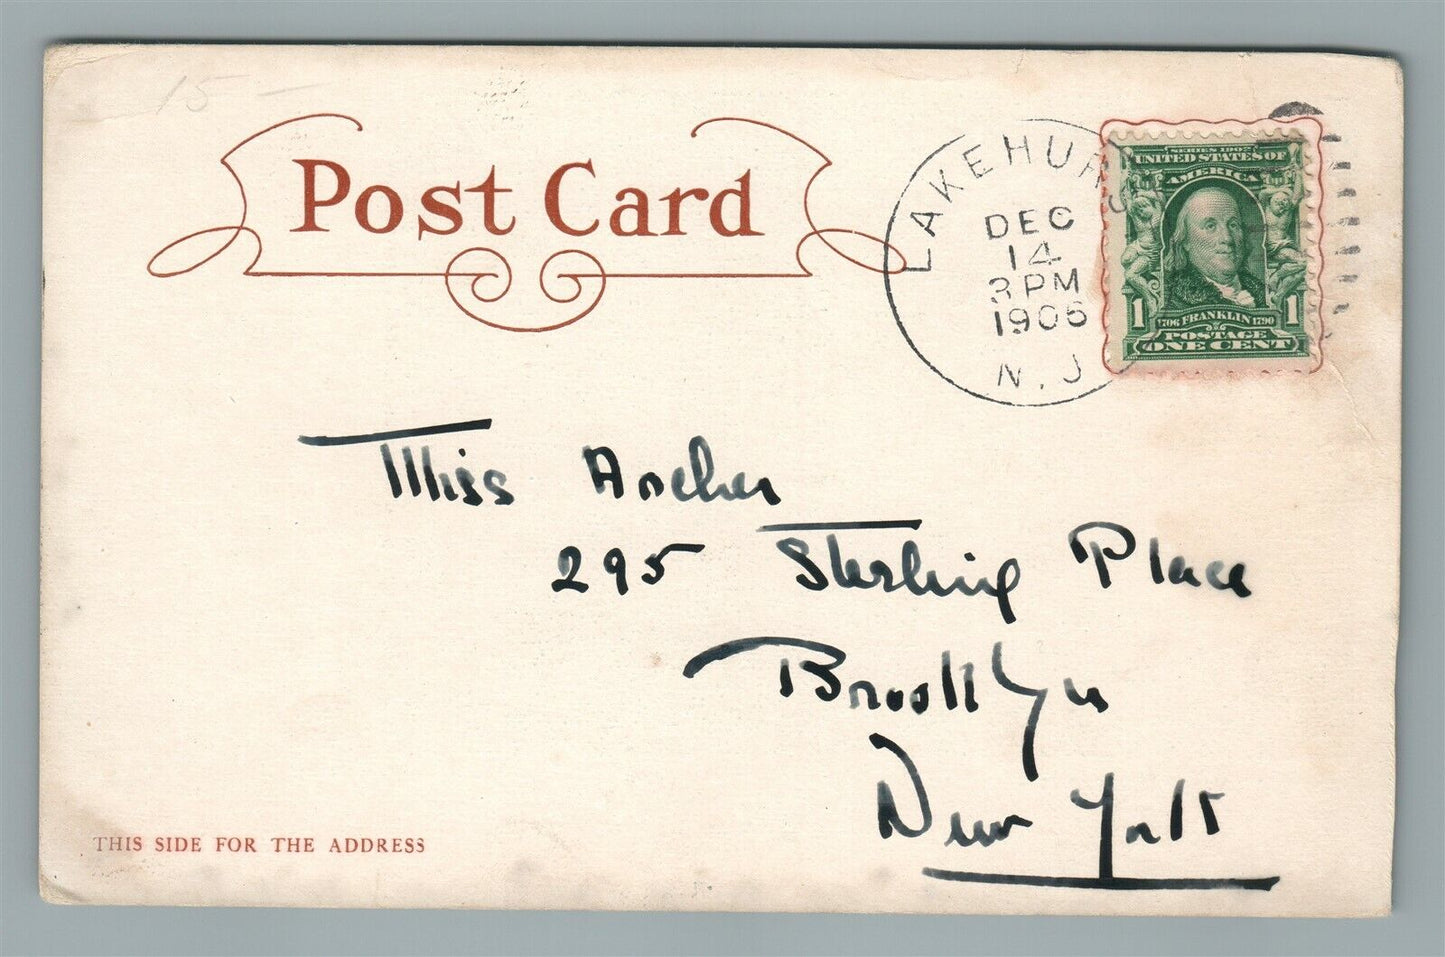 15 –
Post Card
LAKEHURST
DEC
14
3 PM
1906
N.J.
SERIES 1902
UNITED STATES OF
AMERICA
1 1
1706 FRANKLIN 1790
POSTAGE
ONE CENT
Miss Archer
295 Sterling Place
Brooklyn
New York
THIS SIDE FOR THE ADDRESS